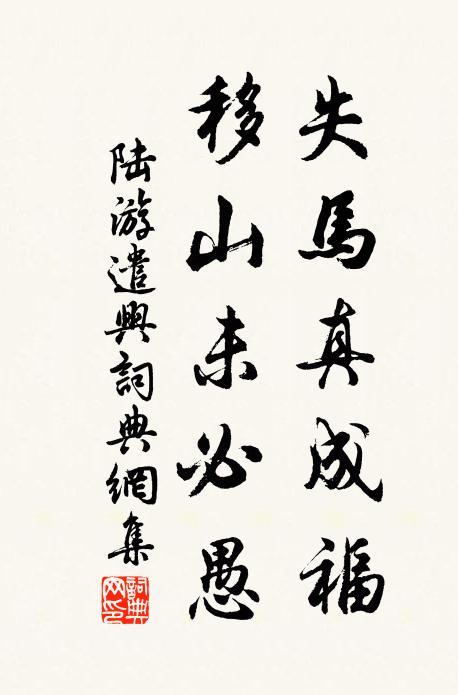 失馬真成福
移山未必愚
陆游遣興詞典網集
詞典
网印